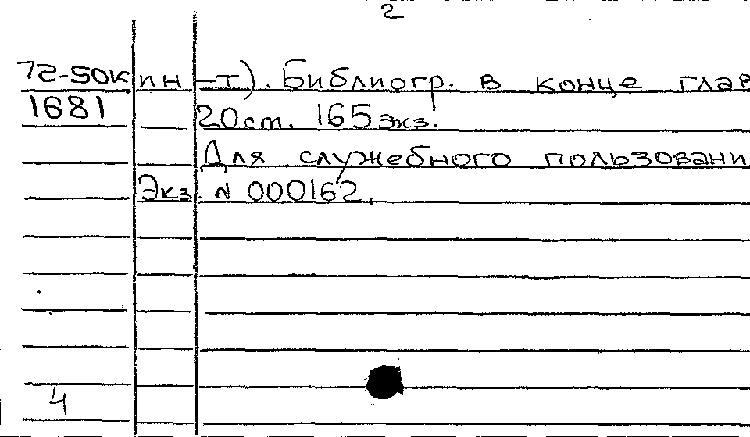 2
72-50к ин-т). Библиогр. в конце глав
1681 20 см. 165 экз.
Для служебного пользовани
Экз. N 000162.
4